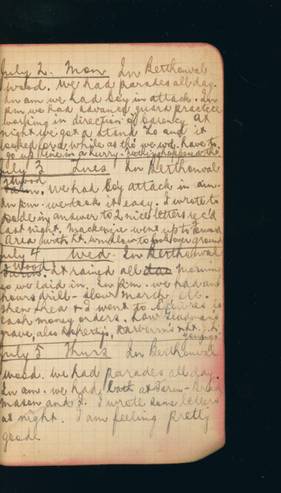 July 2. Mon In Berthonval
Wood. We had parades all day.
In am we had Coy in attack. In
pm we had advanced guard practice
working in direction of Carency. At
night we got a stand to and it
looked for a while as tho we wd. have to
go up line in a hurry.
July 3 Tues In Berthonval
Wood
We had Coy attack in am.
In pm. we took it easy. I wrote to
in answer to 2 nice letters rec'd
last night. Mackenzie went up to
area with
July 4 Wed. In Berthonval
Wood
It rained all morning
so we laid in. In pm. we had an
hours drill - slow march, etc.
Then & I went to
cash money orders. Saw
grave, also
July 5 Thurs In Berthonval
Wood. We had parades all day.
In am. we had bath at
and I. I wrote some letters
at night. I am feeling pretty
good.